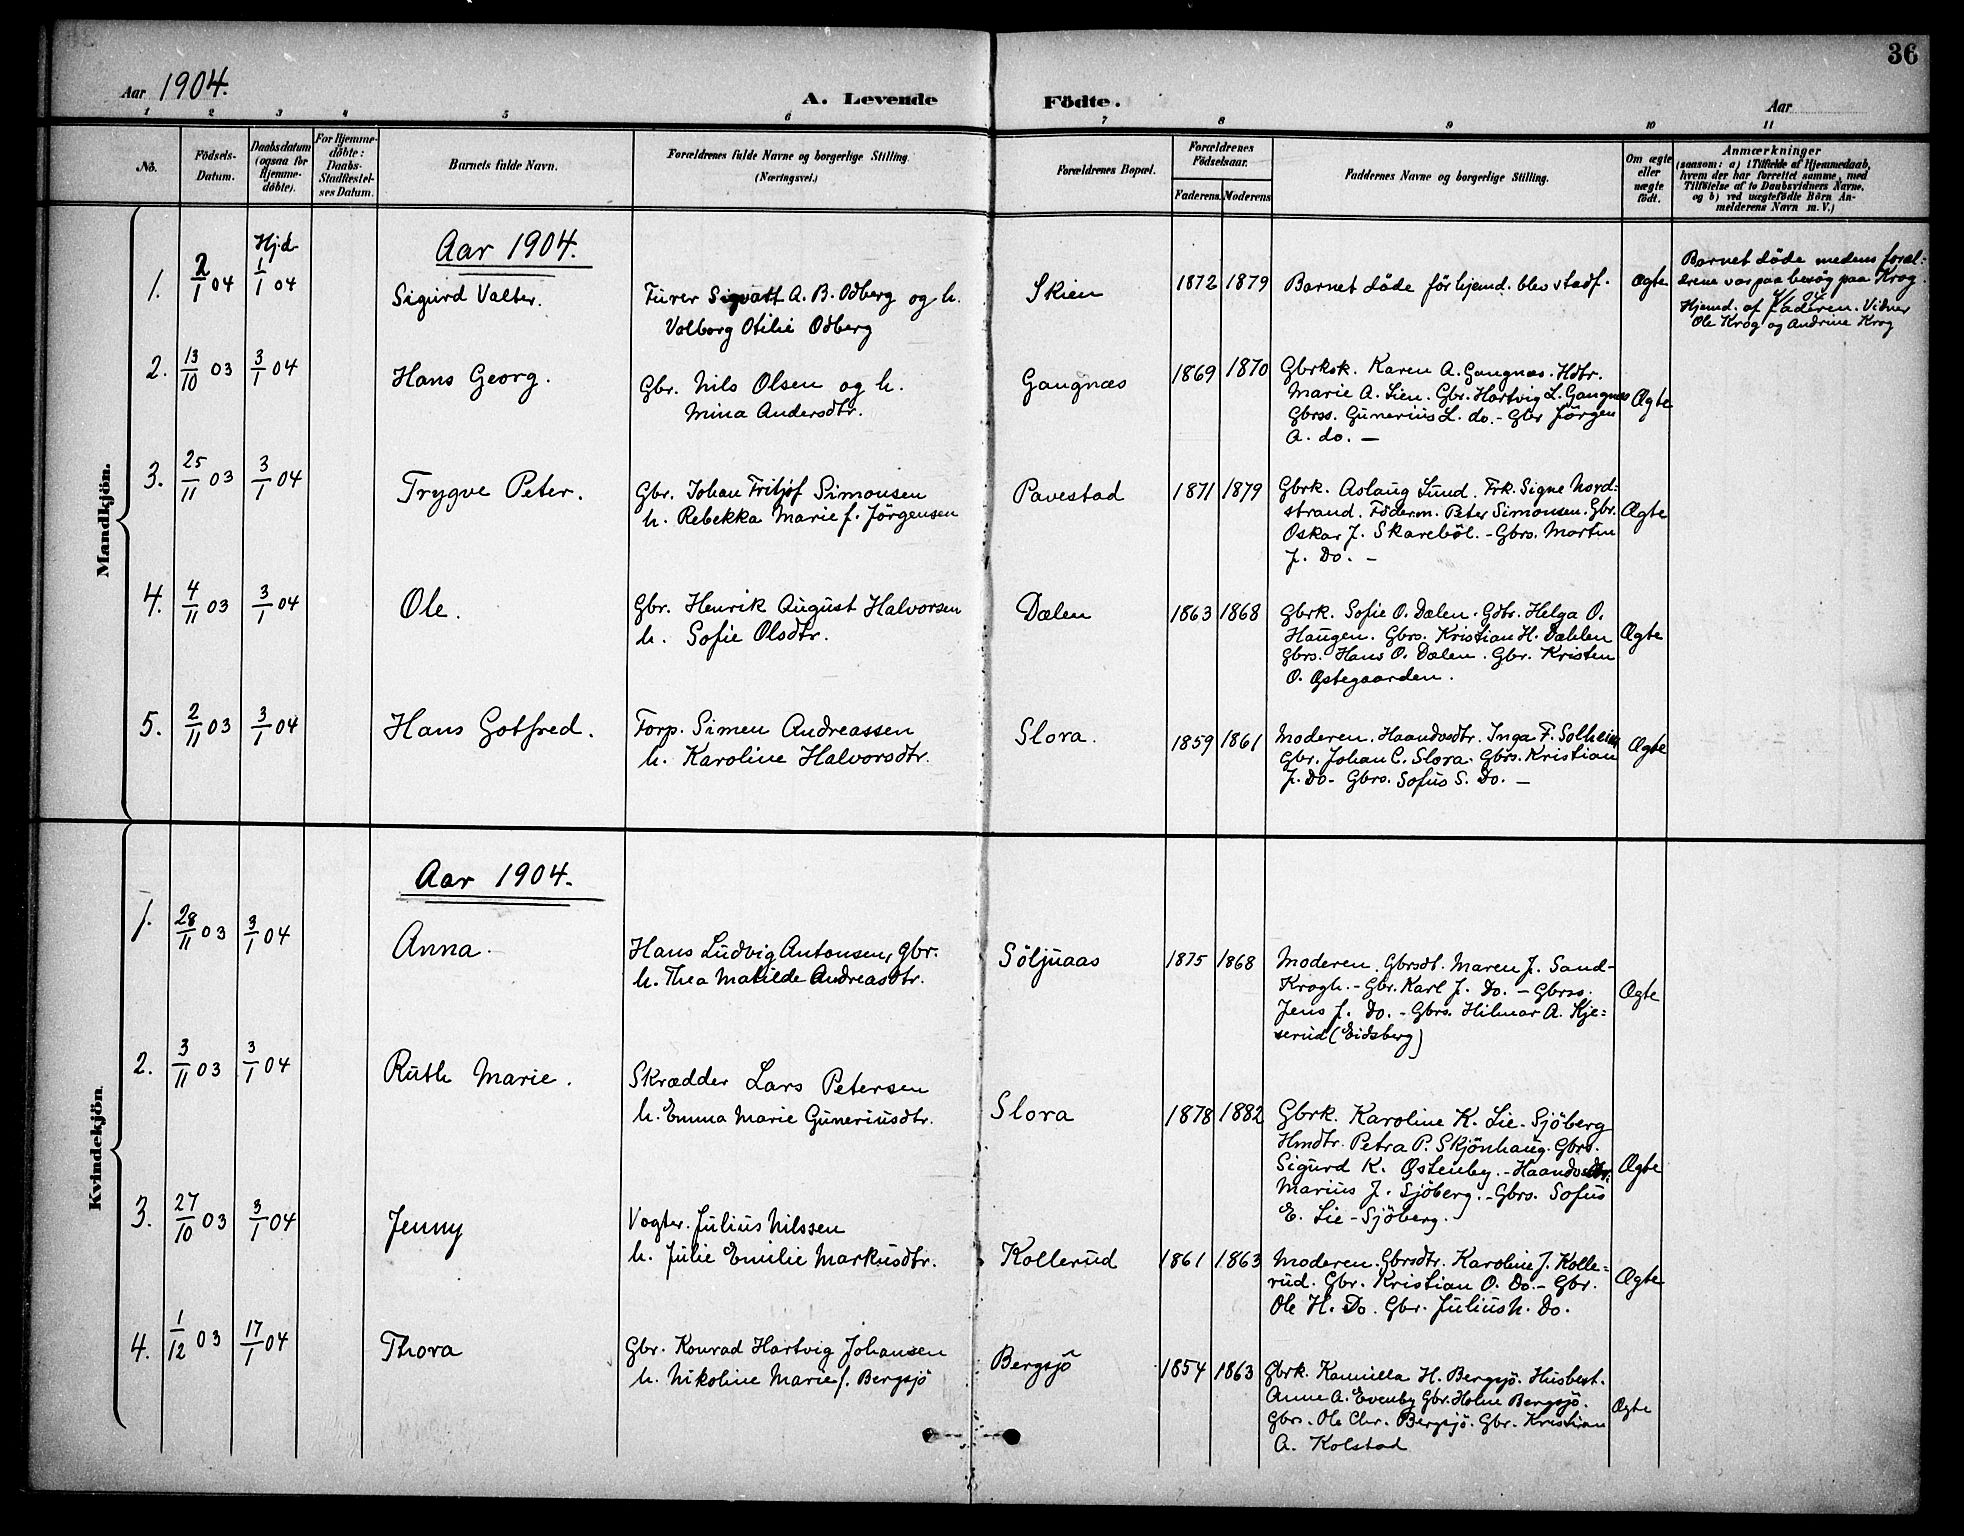 36
Aar 1904.
A. Levende Födte.
Aar
1 2 3 4 5 6 7 8 9 10 11
No.
Födsels-
Datum.
Daabsdatum
(ogsaa for
Hjemme-
döbte).
For Hjemme-
döbte:
Daabs-
Stadfæstel-
ses Datum.
Barnets fulde Navn.
Forældrenes fulde Navne og borgerlige Stilling.
(Næringsvei.)
Forældrenes Bopæl.
Forældrenes
Födselsaar.
Faderens. Moderens
Faddernes Navne og borgerlige Stilling.
Om ægte
eller
uægte
födt.
Anmærkninger
(saasom: a) i Tilfælde af Hjemmedaab,
hvem der har forrettet samme, med
Tilföielse af to Daabsvidners Navne,
og b) ved uægtefödte Börn An-
melderens Navn m. V.)
Mandkjön.
Aar 1904.
1. 2/1 04 Hjd. 1/1 04 Sigurd Valter.
Furer Sigvatt A. B. Odberg og h.
Valborg Otilie Odberg
Skien 1872 1879
Barnet döde för hjemd. blev stadf.
Ægte
Barnet döde medens foræl-
drene var paa besög paa Krog
Hjemd. af Faderen. Vidner
Ole Krog og Andrine Krog
2. 13/10 03 3/1 04 Hans Georg.
Gbr. Nils Olsen og h.
Mina Andersdtr.
Gangnæs 1869 1870
Gbrksk. Karen A. Gangnæs. Hdtr.
Marie A. Lien. Gbr. Hartvig L. Gangnæs
Gbrss. Gunerius L. do. - Gbr Jörgen
A. do. —
Ægte
3. 25/11 03 3/1 04 Trygve Peter.
Gbr. Johan Fritjof Simonsen
h. Rebekka Marie f. Jörgensen
Pavestad 1871 1879
Gbrk. Aslaug Lund. Frk. Signe Nord-
strand. Föderm. Peter Simonsen. Gbr.
Oskar J. Skareböl. - Gbrs. Martin
J. Do. —
Ægte
4. 4/11 03 3/1 04 Ole.
Gbr. Henrik August Halvorsen
h. Sofie Olsdtr.
Dælen 1863 1868
Gbrk. Sofie O. Dælen. Gdtr. Helga O.
Haugen. Gbrs. Kristian H. Dæhlen
Gbrs. Hans O. Dælen. Gbr. Kristen
O. Østegaarden.
Ægte
5. 2/11 03 3/1 04 Hans Gotfred.
Torp. Simen Andreassen
h. Karoline Halvorsdtr.
Slora. 1859 1861
Moderen. Haandvdtr. Inga F. Solheim
Gbr. Johan C. Slora. Gbrs. Kristian
J. Do - Gbrs. Sofus S. Do. —
Ægte
Kvindekjön
Aar 1904.
1. 28/11 03 3/1 04 Anna.
Hans Ludvig Antonsen, Gbr.
h. Thea Matilde Andreasdtr.
Söljuaas 1875 1868
Moderen. Gbrsdt. Maren J. Sand-
Krogh. - Gbr. Karl J. Do. - Gbrss.
Jens J. Do. - Gbrs. Hilmar A. Kje-
serud (Eidsberg)
Ægte
2. 3/11 03 3/1 04 Ruth Marie.
Skrædder Lars Petersen
h. Emma Marie Guneriusdtr.
Slora 1878 1882
Gbrk. Karoline K. Lie-Sjöberg
Hmdtr. Petra P. Skjönhaug. Gbrs.
Sigurd K. Østenby. - Haandv
Marius J. Sjöberg. - Gbrs. Sofus
E. Lie-Sjöberg.
Ægte
3. 27/10 03 3/1 04 Jenny
Vogter. Julius Nilssen
h. Julie Emilie Markusdtr.
Kollerud 1861 1863
Moderen. Gbrsdtr. Karoline J. Kolle-
rud. Gbr. Kristian O. Do. - Gbr.
Ole H. Do. Gbr. Julius N. Do.
Ægte
4. 1/12 03 17/1 04 Thora
Gbr. Konrad Hartvig Johansen
h. Nikoline Marie f. Bergsjö
Bergsjö 1854 1863
Gbrk. Kamilla H. Bergsjö. Husbest.
Anne A. Evenby Gbr. Holm Bergsjö.
Gbrs. Ole Chr. Bergsjö. Gbr. Kristian
A. Kolstad
Ægte